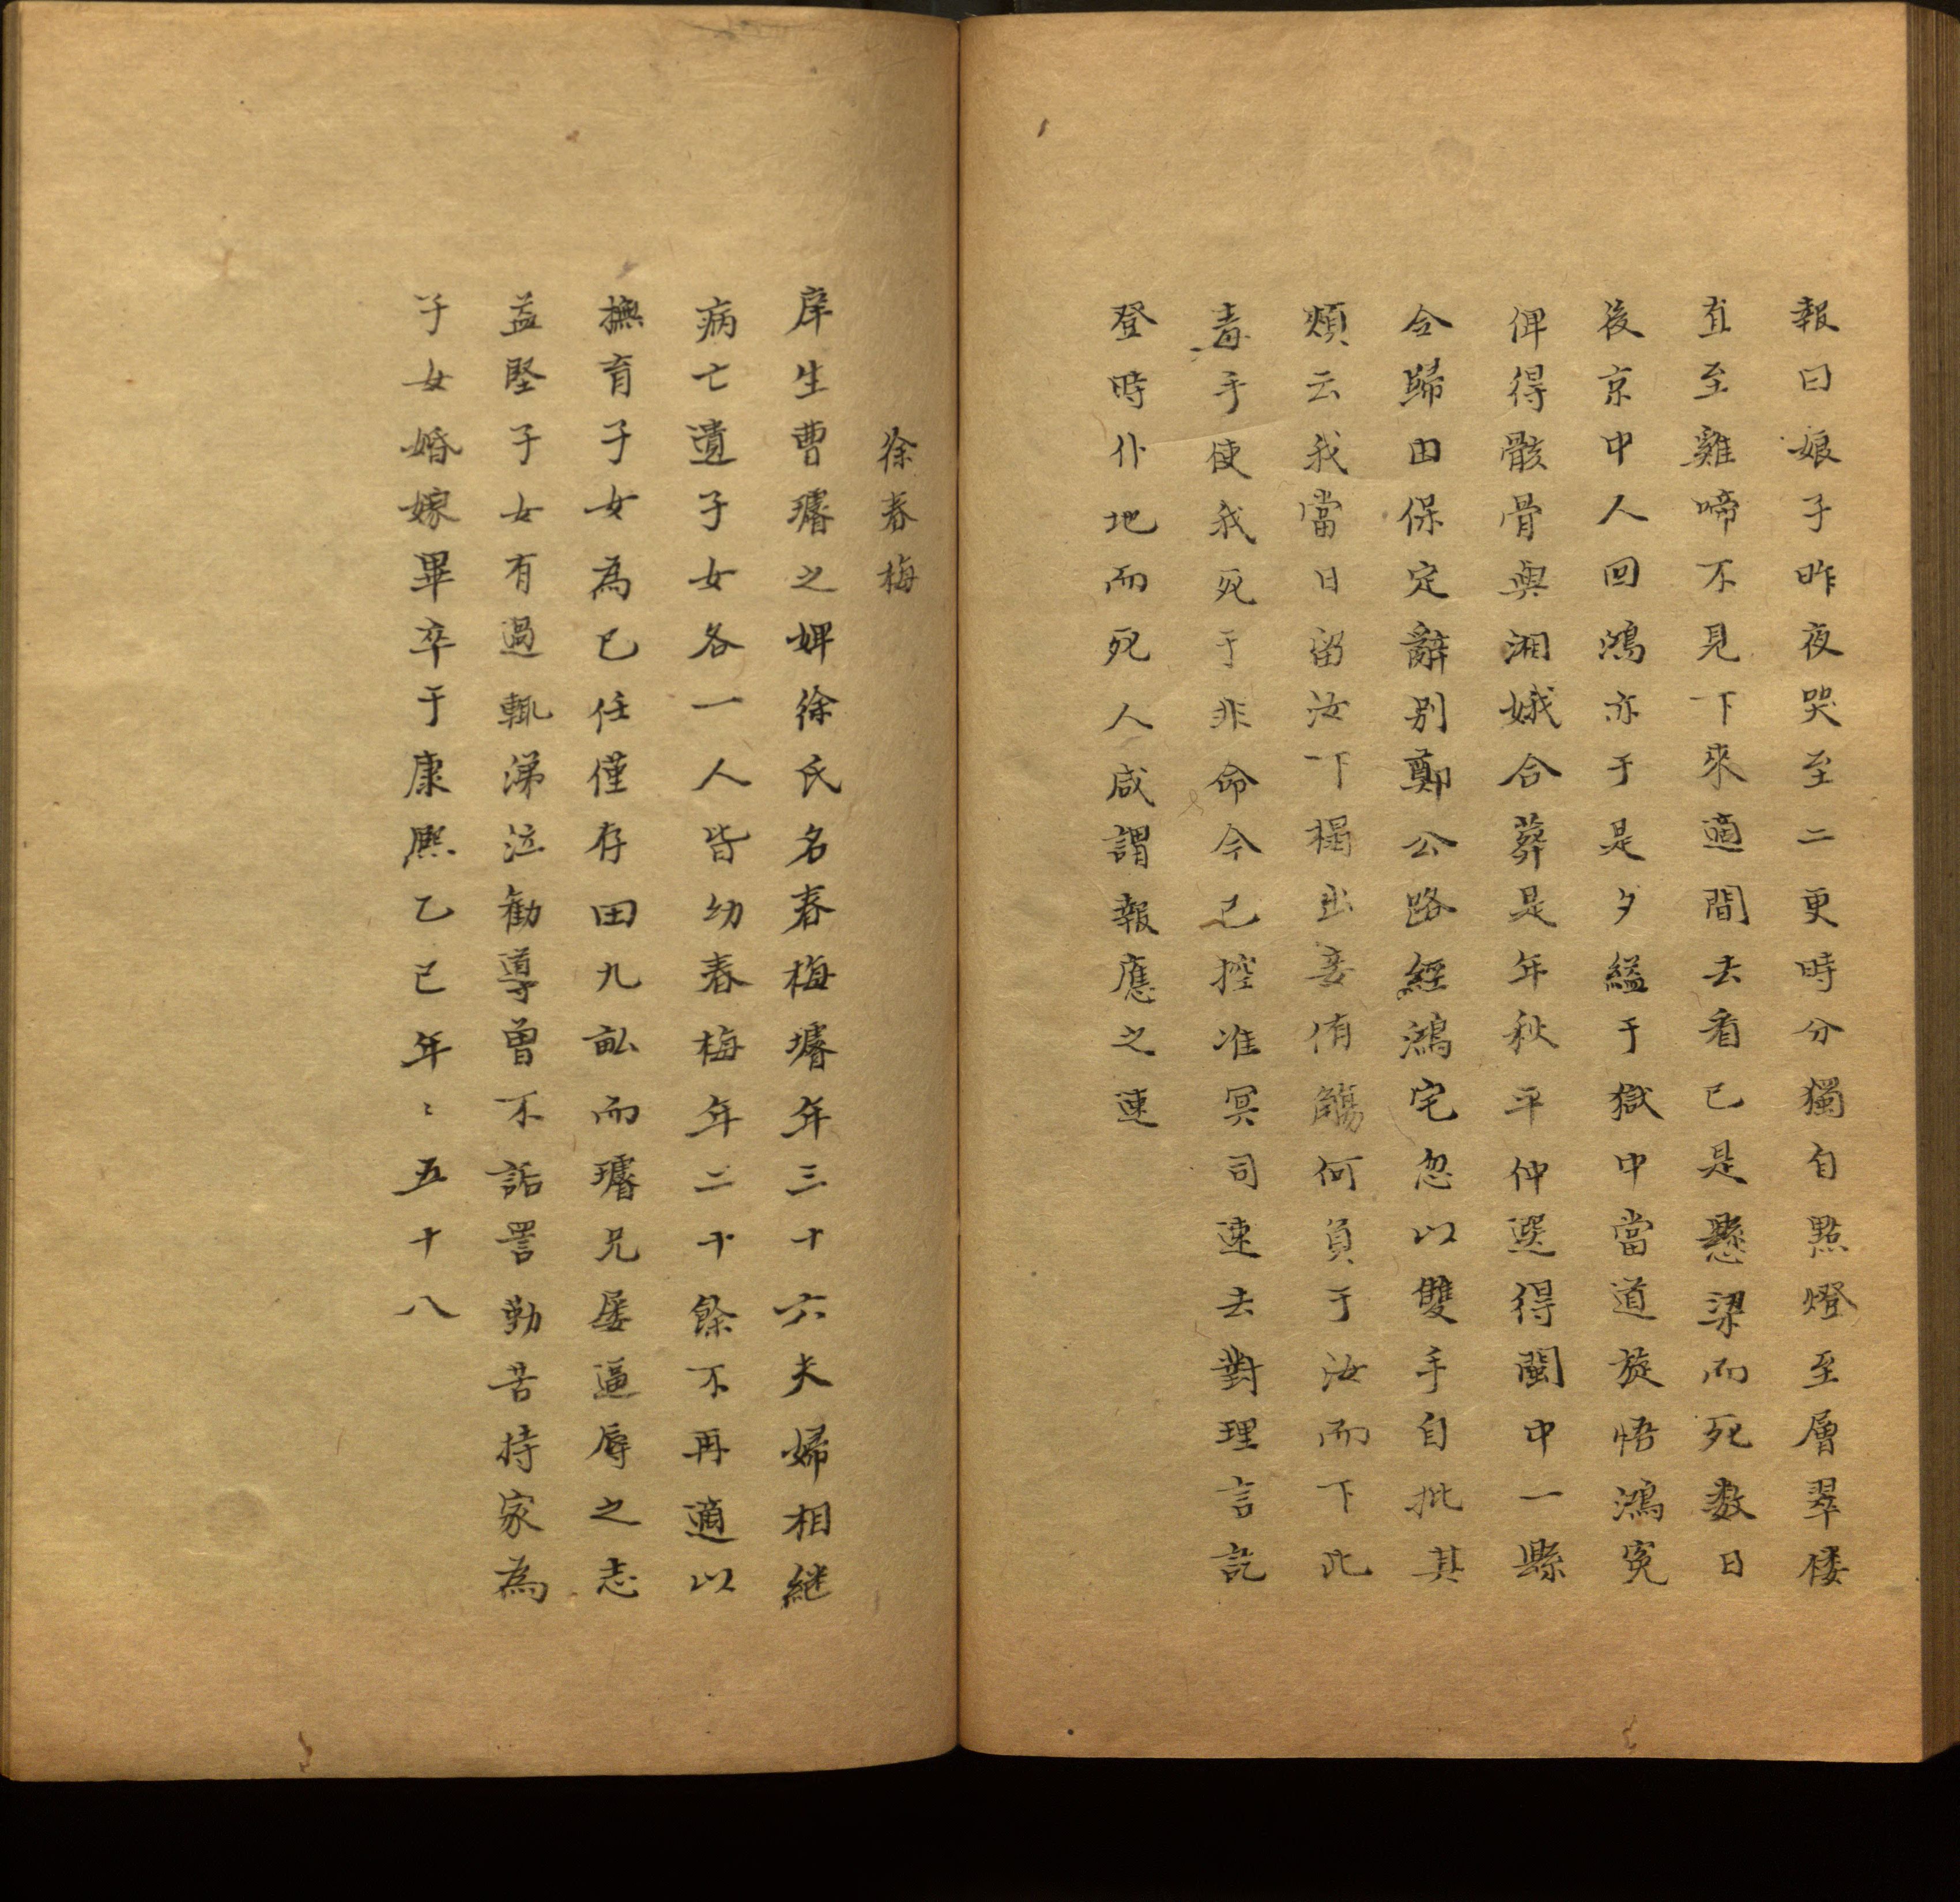 報曰娘子昨夜哭至二更時分獨自點燈至層翠楼
直至雞啼不見下來適間去看已是懸梁而死数日
後京中人回鴻亦于是夕縊于獄中當道旋悟鴻寃
俾得骸骨與湘娥合葬是年秋平仲選得閩中一縣
令歸由保定辭别鄭公路經鴻宅忽以雙手自批其
頰云我當日留汝下榻出妾侑觴何負于汝而下此
毒手使我死于非命今已控准冥司速去對理言訖
登時仆地而死人咸謂報應之速
徐春梅
庠生曹璿之婢徐氏名春梅璿年三十六夫婦相継
病亡遺子女各一人皆幼春梅年二十餘不再適以
撫育子女為己任僅存田九畆而璿兄屡逼辱之志
益堅子女有過輒涕泣勸導曾不詬詈勤苦持家為
子女婚嫁畢卒于康熙乙巳年〻五十八